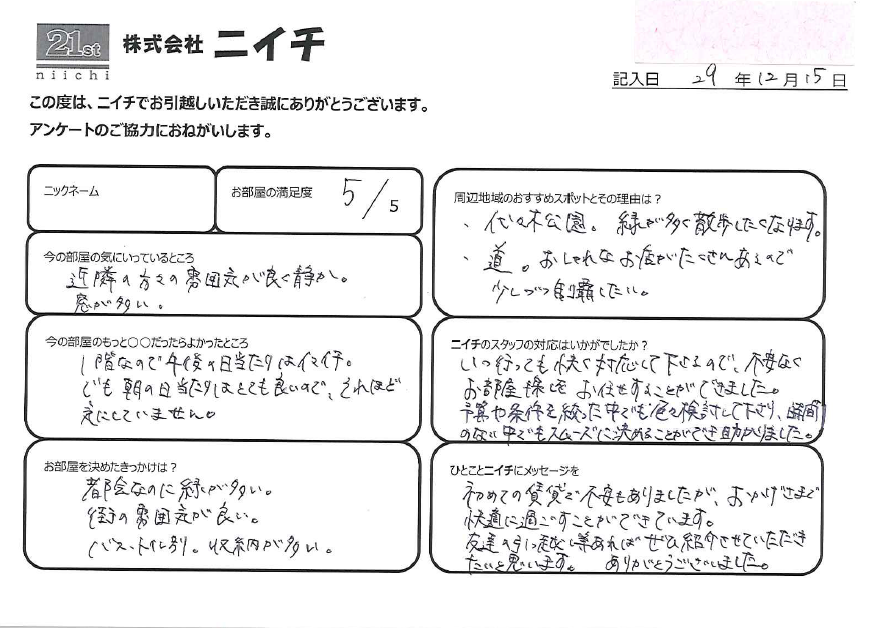 21st
niichi
株式会社 ニイチ
記入日 29 年 12 月 15 日
この度は、ニイチでお引越しいただき誠にありがとうございます。
アンケートのご協力におねがいします。
ニックネーム
お部屋の満足度 5/5
今の部屋の気にいっているところ
近隣の方々の雰囲気が良く静か。
窓が多い。
今の部屋のもっと○○だったらよかったところ
1階なので午後の日当たりはイマイチ。
でも朝の日当たりはとても良いので、それほど
気にしていません。
お部屋を決めたきっかけは？
都会なのに緑が多い。
街の雰囲気が良い。
バス・トイレ別。収納が多い。
周辺地域のおすすめスポットとその理由は？
、代々木公園。緑が多く散歩したくなります。
、道。おしゃれなお店がたくさんあるので
少しづつ制覇したい。
ニイチのスタッフの対応はいかがでしたか？
いつ行っても快く対応して下さるので、不安なく
お部屋探しをお任せすることができました。
予算や条件を絞った中でも色々検討して下さり、時間
のない中でもスムーズに決めることができ助かりました。
ひとことニイチにメッセージを
初めての賃貸で不安もありましたが、おかげさまで
快適に過ごすことができています。
友達の引っ越し等あればぜひ紹介させていただき
たいと思います。 ありがとうございました。